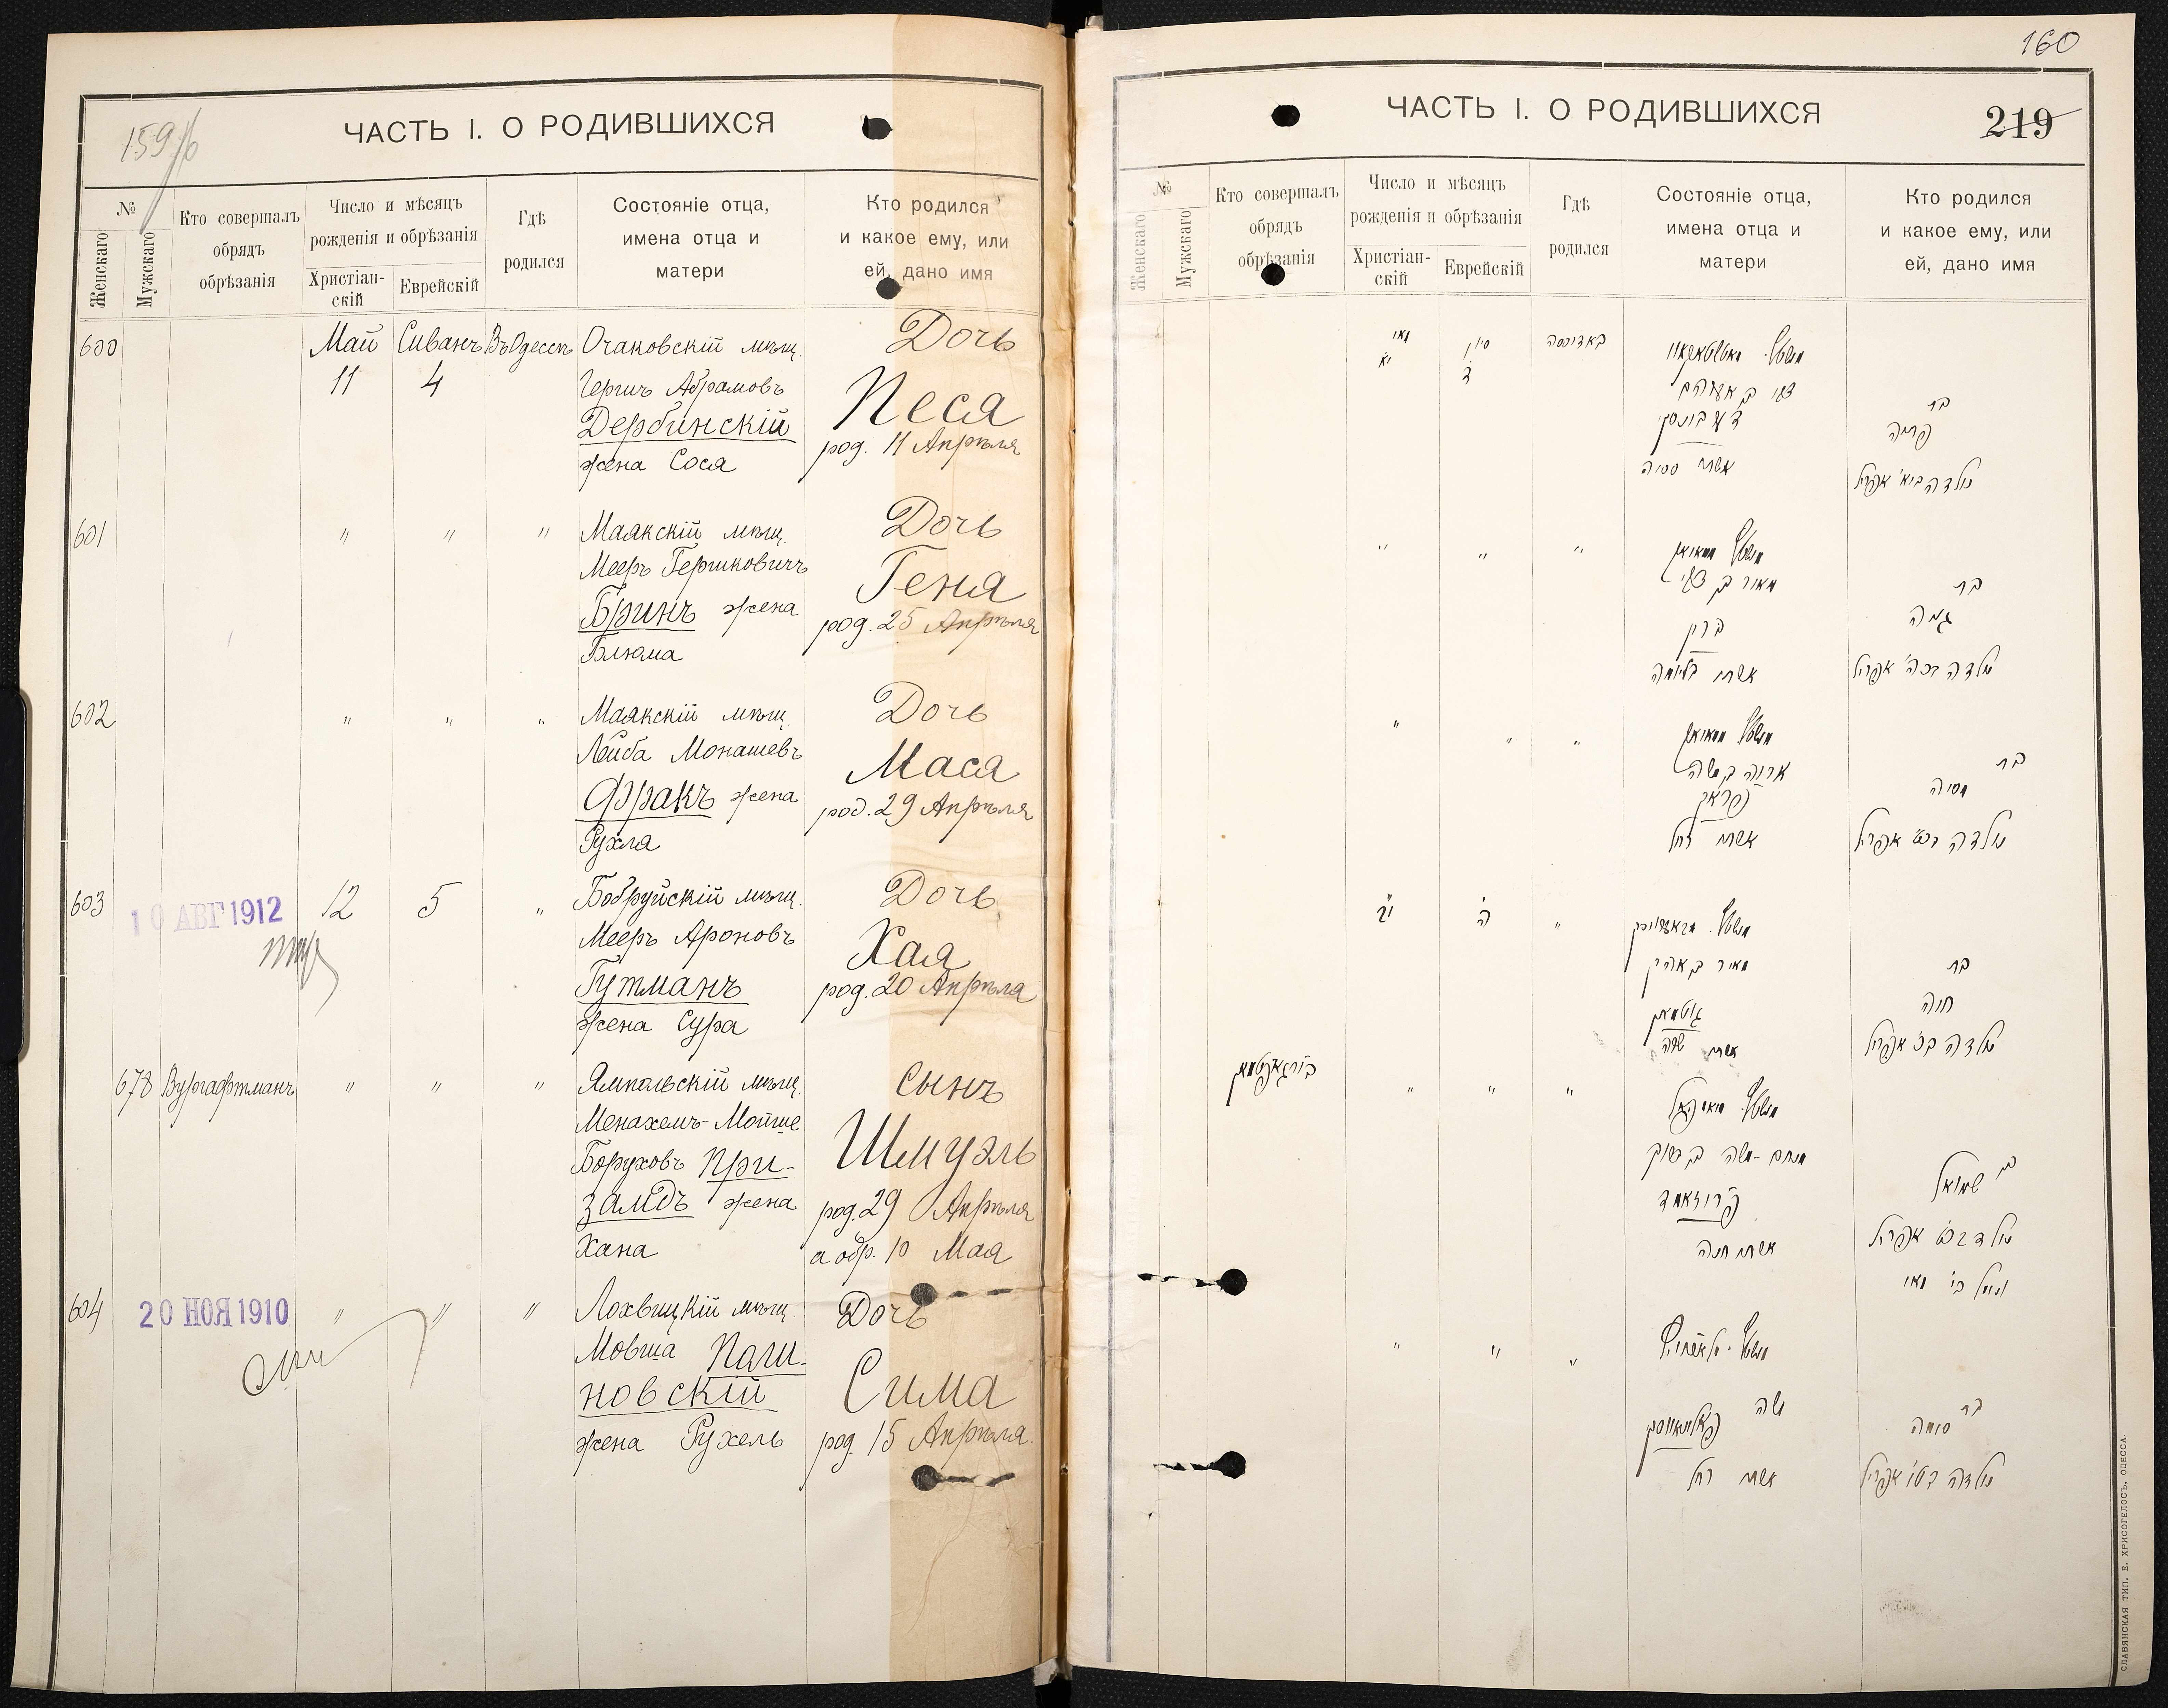 159 об
ЧАСТЬ I. О РОДИВШИХСЯ
№
Женскаго
Мужскаго
Кто совершалъ
обрядъ
обрѣзанія
Число и мѣсяцъ
рожденія и обрѣзанія
Христіан-
скій
Еврейскій
Гдѣ
родился
Состояніе отца,
имена отца и
матери
Кто родился
и какое ему, или
ей, дано имя
600 Май Сиванъ Въ Одессѣ Очаковскій мѣщ. Дочь
11 4 Гершъ Абрамовъ Песя
Дербинскій род. 11 Апрѣля
жена Сося
601 " " " Маякскій мѣщ. Дочь
Мееръ Гершковичъ Геня
Бринъ жена род. 25 Апрѣля
Блюма
602 " " " Маякскій мѣщ. Дочь
Лейба Монашевъ Мася
Фракъ жена род. 29 Апрѣля
Рухля
603 10 АВГ 1912 12 5 " Бобруйскій мѣщ. Дочь
Мееръ Ароновъ Хая
Гутманъ род. 20 Апрѣля
жена Сура
678 Вургафтманъ " " " Ямпольскій мѣщ. Сынъ
Менахемъ-Мойше Шмуэль
Боруховъ При-
замдъ жена род. 29 Апрѣля
Хана а обр. 10 Мая
604 20 НОЯ 1910 " " " Лохвицкій мѣщ. Дочь
Мовша Пали-
новскій Сима
жена Рухель род. 15 Апрѣля.
160
ЧАСТЬ I. О РОДИВШИХСЯ
219
№
Женскаго
Мужскаго
Кто совершалъ
обрядъ
обрѣзанія
Число и мѣсяцъ
рожденія и обрѣзанія
Христіан-
скій
Еврейскій
Гдѣ
родился
Состояніе отца,
имена отца и
матери
Кто родился
и какое ему, или
ей, дано имя
מאי סיון באדיססה
יא ד
צבי בן אברהם
בת
אשת סוסיה
נולדה בי״א אפריל
" " "
מאיר בן צבי בת
ברין גניה
אשת בלומה נולדה בכ״ה אפריל
" " "
בת
פראק מסיה
אשת רחל נולדה בכ״ט אפריל
י״ב ה "
מאיר בן אהרן בת
גוטמאן חיה
אשת שרה נולדה בכ׳ אפריל
בורגאפטמאן " " "
מנחם-משה בן ברוך
בן שמואל
פריזאמד
אשת חנה נולד בכ״ט אפריל
ונימול בי׳ מאי
" " "
משה בת
סימה
אשת רחל נולדה בט״ו אפריל
СЛАВЯНСКАЯ ТИП. Е. ХРИСОГЕЛОСЪ, ОДЕССА.